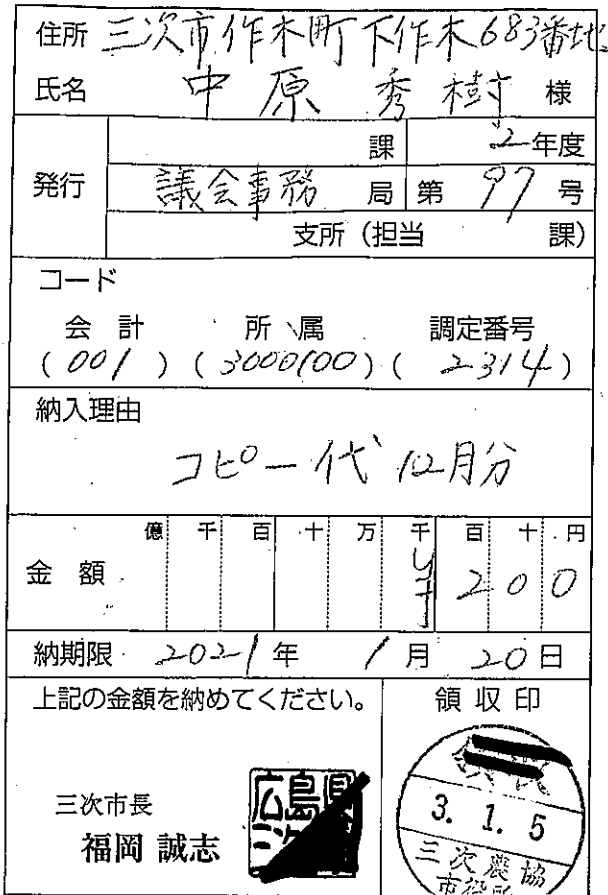 住所 三次市作木町下作木683番地
氏名 中原 秀樹 様
発行
課 2年度
議会事務局 第 97 号
支所(担当 課)
コード
会計 所属 調定番号
(001)(3000100)(2314)
納入理由
コピー代 12月分
億 千 百 十 万 千 百 十 円
金額 ¥200
納期限 2021年 1月 20日
上記の金額を納めてください。
領収印
三次市長
福岡 誠志
広島県
三次
3. 1. 5
三次農協
市役所